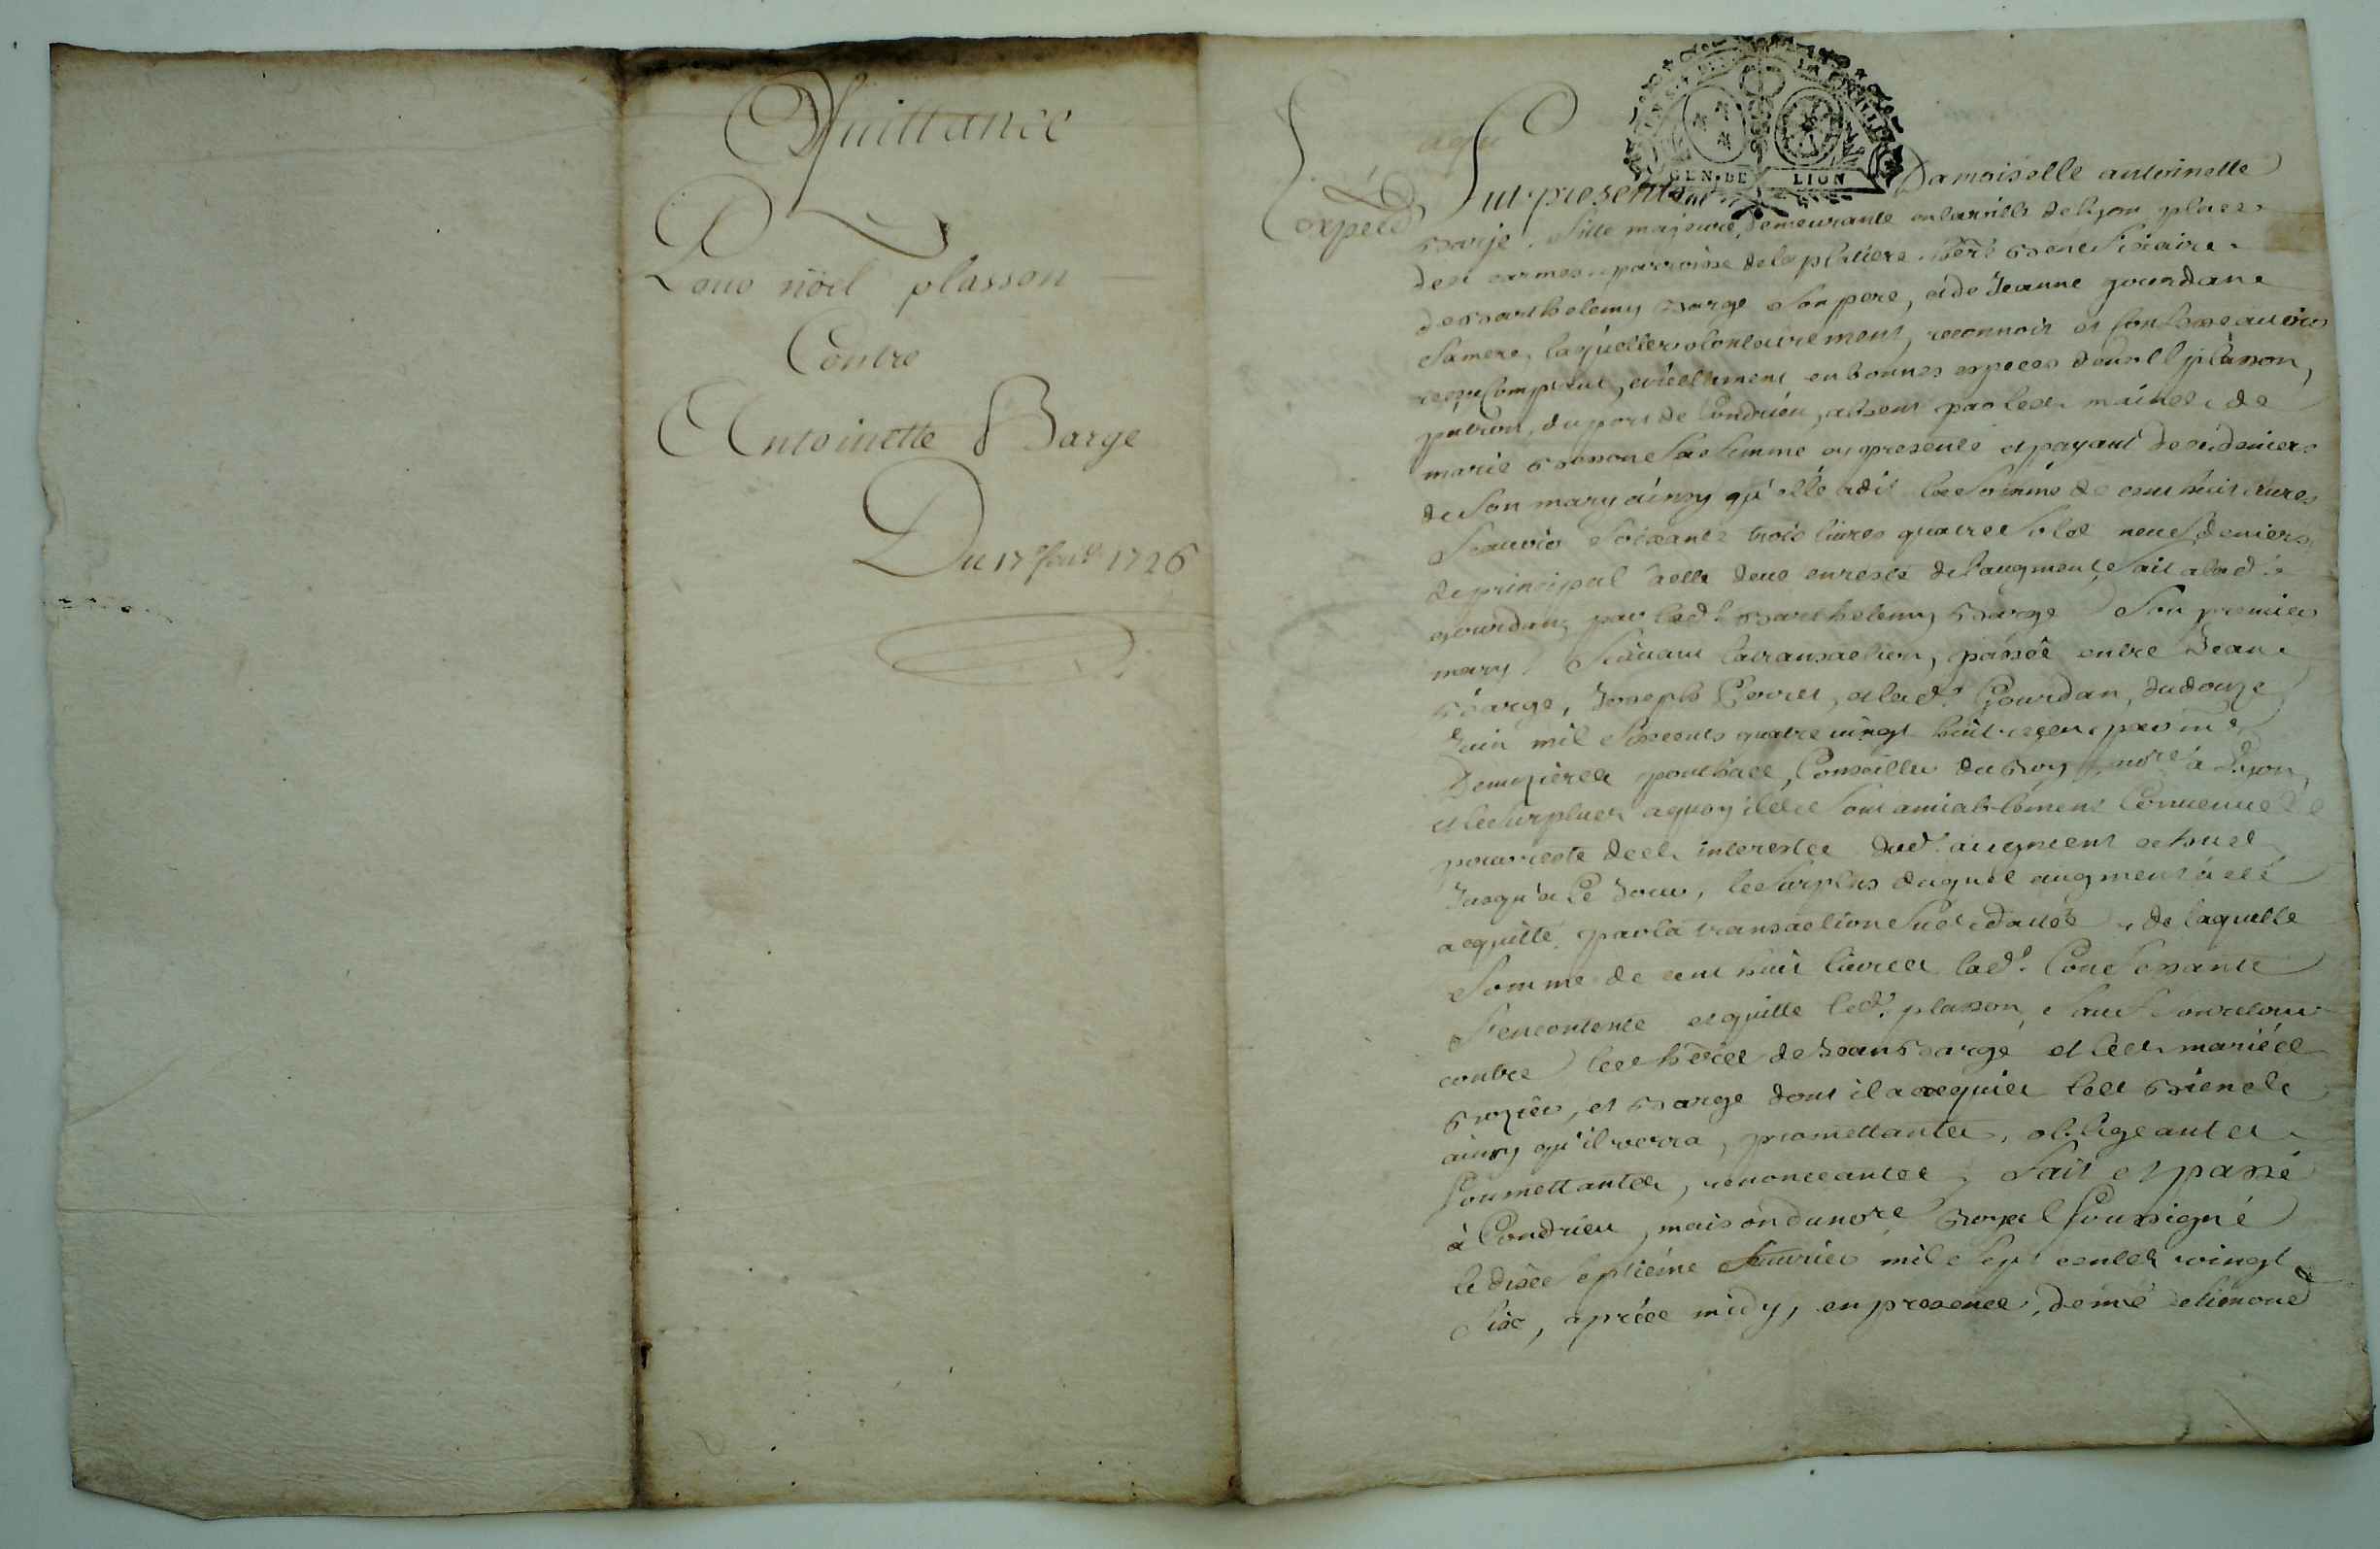 Quittance
Pour nöel plasson
Contre
Antoinette Barge
Du 17e fevr 1726
GEN. DE LION
Expéd
Fut presente Damoiselle antoinette
Barje, fille majeure, demeurante en la ville de Lyon, place
des carmes, parroisse de la platiere, Beneficiaire
de Barthelemy Barge son pere, et de Jeanne gourdane
sa mere, laquelle volontairement, reconnoit et confesse avoir
reçu comptant, reéellement en bonnes especes de plasson,
patron, du port de Condrieu, absent par les mains de
marie sa femme cy presente et payant des deniers
de son mary ainsy qu'elle a dit la somme de cent huit livres
scavoir soixante trois livres quatre sols neuf deniers
de principal a elle deue en reste de l'augment fait a lad.
gourdan, par led. Barthelemy Barge son premier
mary, suivant la transaction, passée entre Jean
Barge, Joseph et lad. Gourdan, du douze
Juin mil six cents quatre vingt huit reçeu par me
ponthace, Conseiller du Roy, notre à Lyon,
et le surplus a quoy ils se sont amiablement Convenues
pour reste des interestes dud. augment echus
Jusqu'a Ce Jour, le surplus duquel augment a eté
acquitté par la transaction sus dattée, de laquelle
somme de cent huit livres lad. Confessante
s'en contente et quitte led. plasson, sauf son retour
contre les hers de Jean Barge et les mariés
et Barge dont il a acquies les Biens
ainsy qu'il verra, promettantes, obligeantes
soumettantes, renonceantes, fait et passé
à Condrieu, maison du nore Royal soussigné
le dixe septieme fevrier mil sept cents vingt
six, aprèes midy, en presence, de me